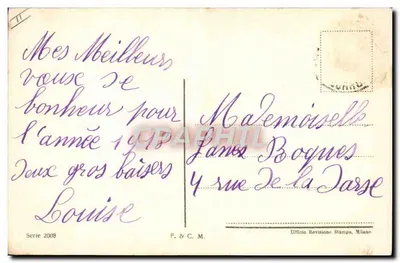 Mes Meilleurs
voeux de
bonheur pour
l'année 1918
deux gros baisers
Louise
Mademoiselle
Boques
4 rue de la Darse
Serie 2008
F. & C. M.
Ufficio Revisione Stampa, Milano.
CPAPHIL